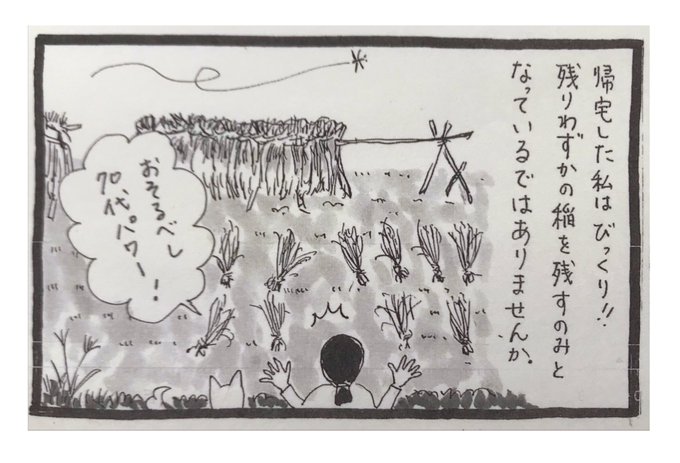 帰宅した私はびっくり!!
残りわずかの稲を残すのみと
なっているではありませんか。
おそるべし
70代パワー!